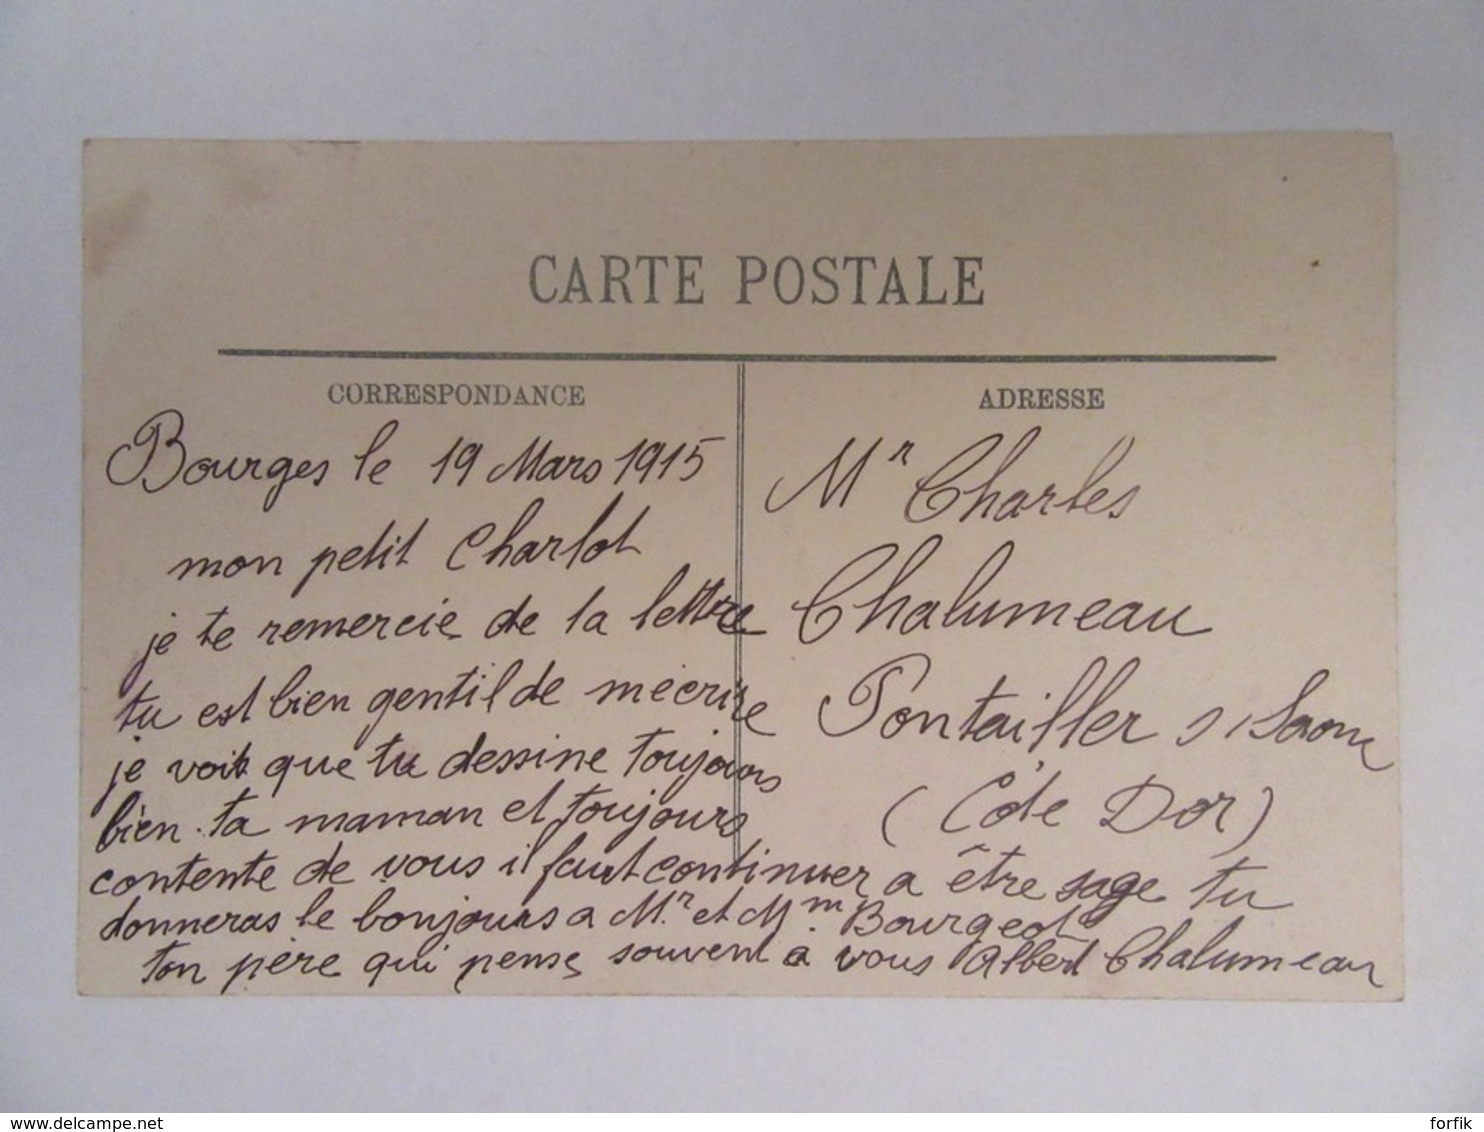 CARTE POSTALE
CORRESPONDANCE
Bourges le 19 Mars 1915
mon petit Charlot
je te remercie de la lettre
tu est bien gentil de mécrire
je voit que tu dessine toujours
bien. ta maman et toujours
contente de vous il faut continuer a être sage tu
donneras le bonjours a Mr et Mm. Bourgeot
ton père qui pense souvent a vous Albert Chalumeau
ADRESSE
Mr Charles
Chalumeau
Pontailler s/Saone
(Côte Dor)
forfik